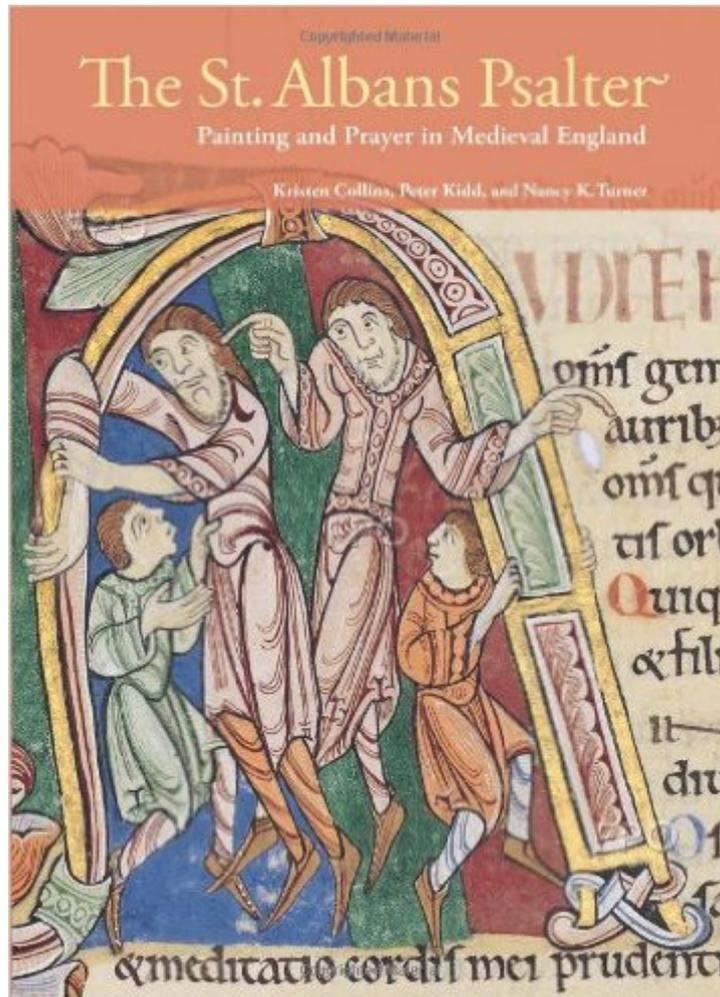 Copyrighted Material
The St. Albans Psalter
Painting and Prayer in Medieval England
Kristen Collins, Peter Kidd, and Nancy K. Turner
VDITE H
om̄s gen
aurib;
om̄s q
tis or
Quiq
& fili
ıı
diu
&meditatio cordis mei prudent